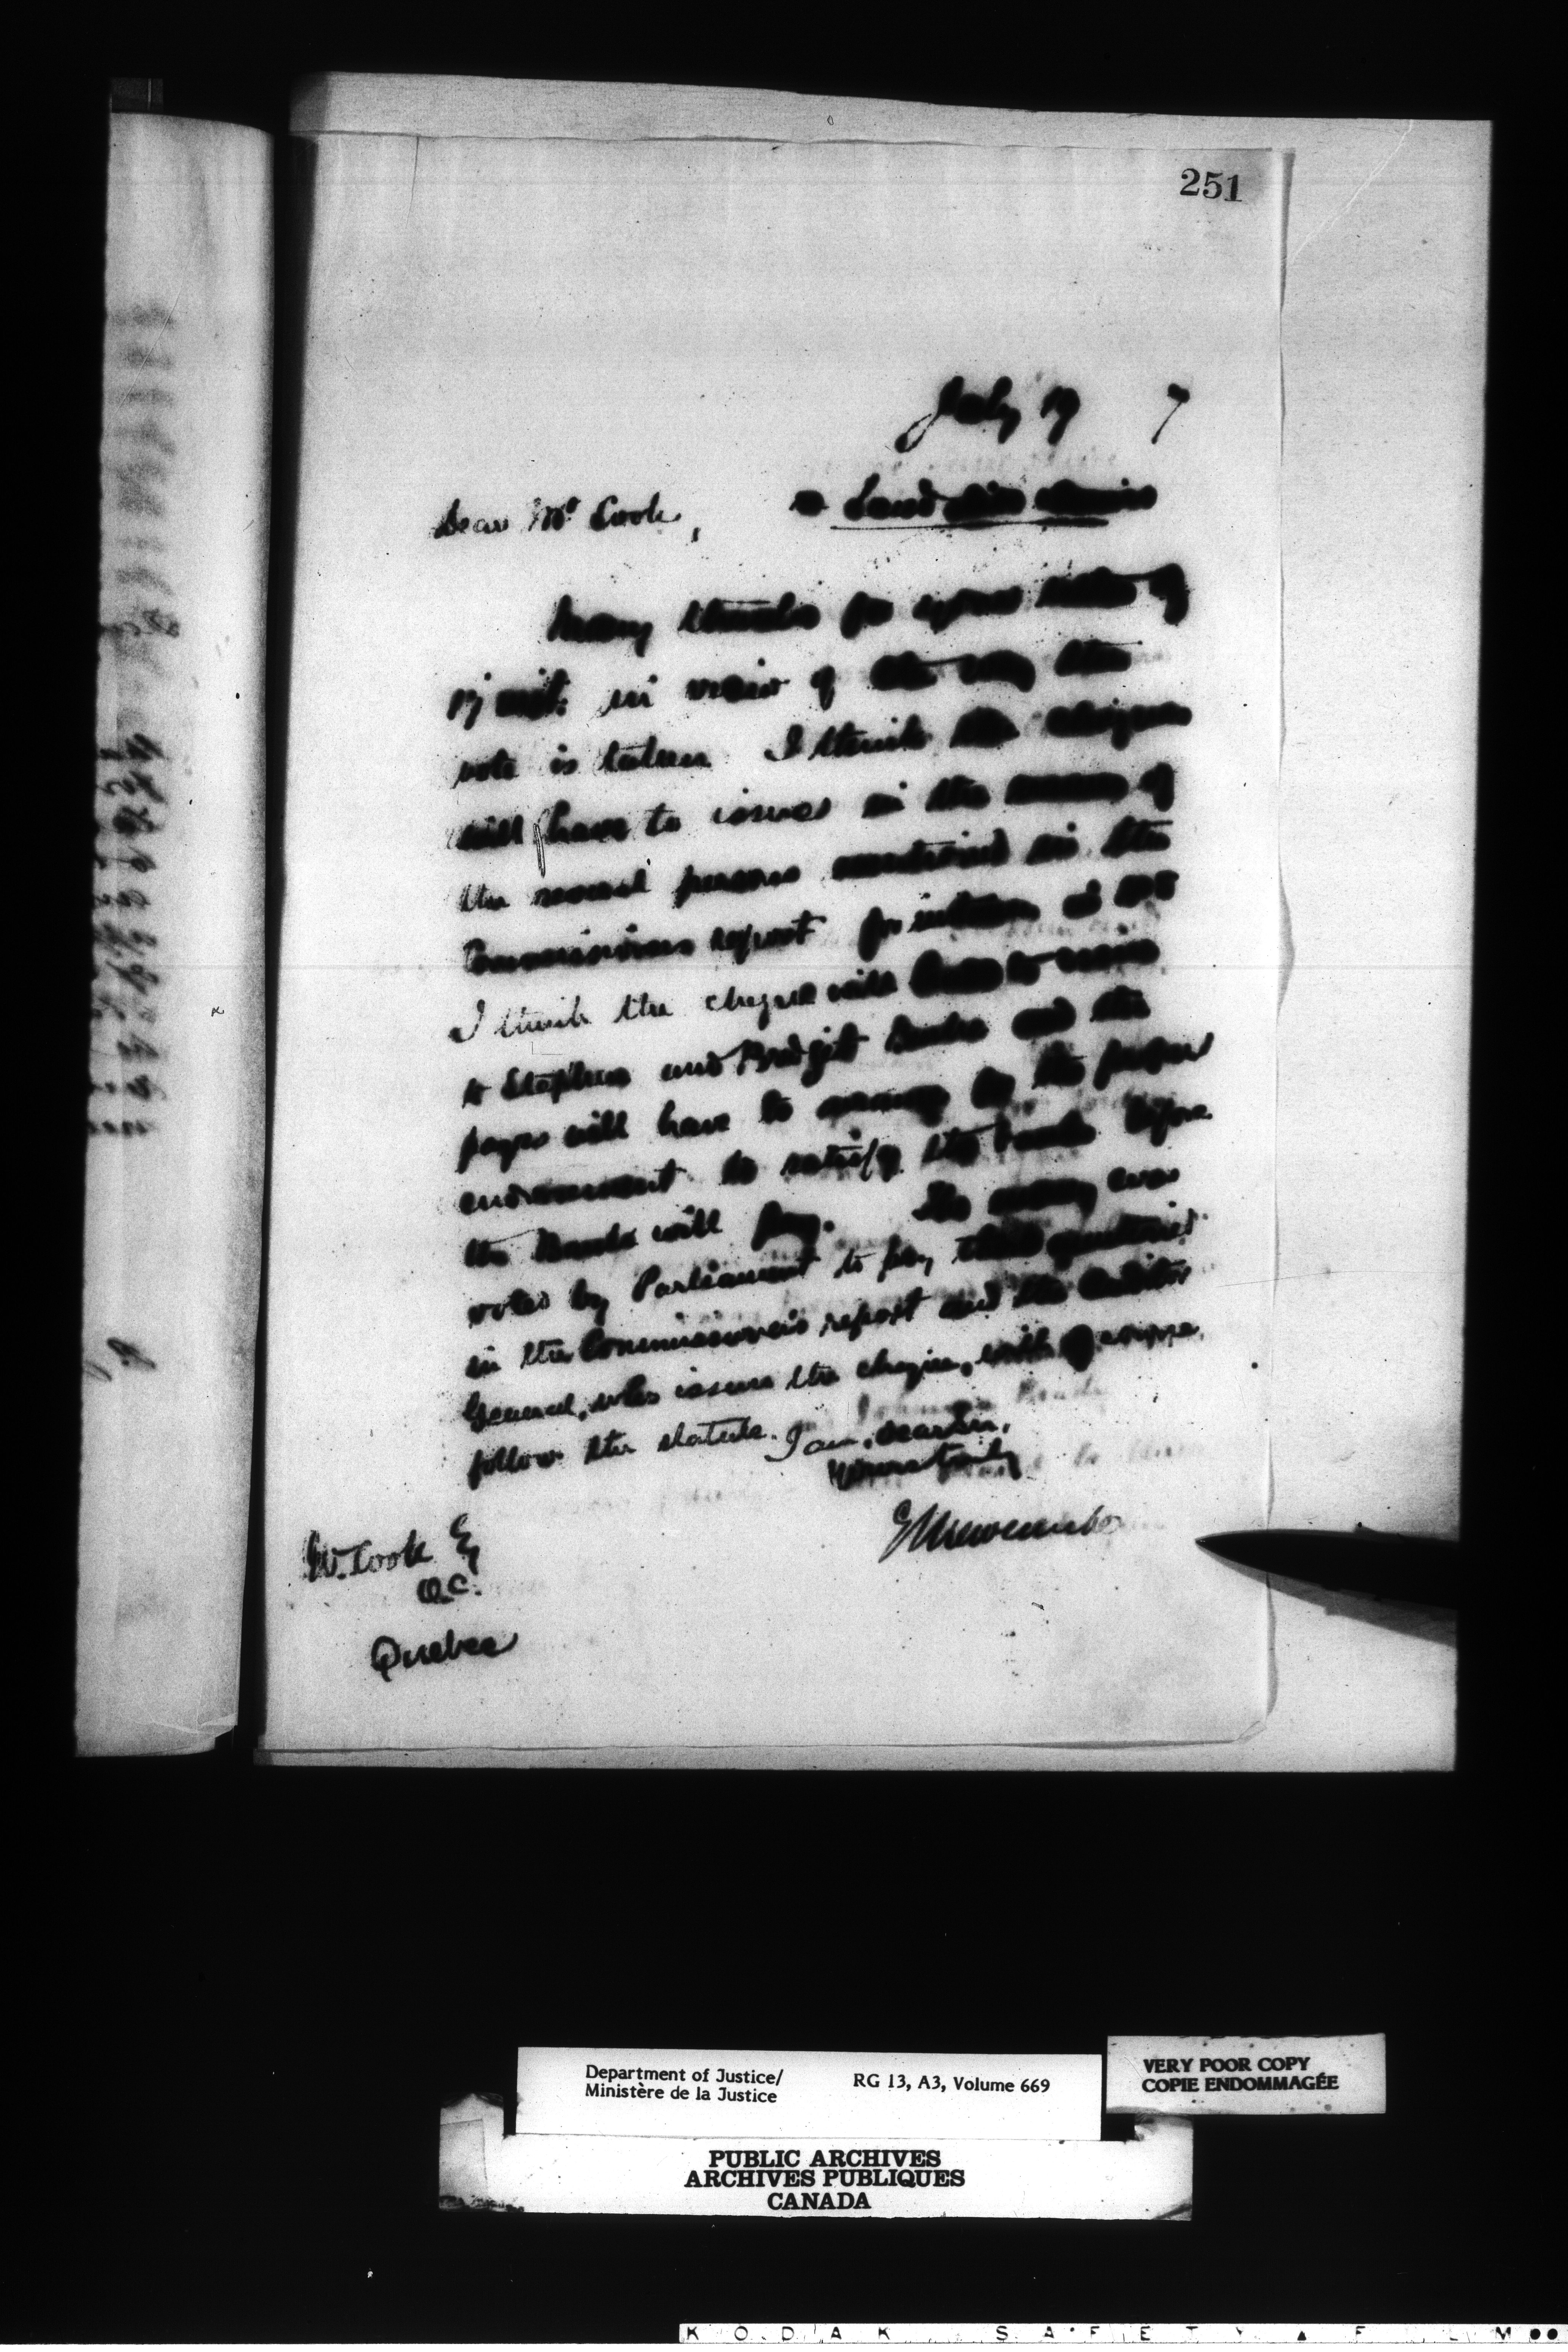 251
July 19 7
Dear Mr Cook,
Many thanks for your note of
17 inst: in view of the way the
vote is taken I think the cheques
will have to issue in the names of
the several persons mentioned in the
Commissioners report for instance
I think the cheque will have to issue
to Stephen and Bridget and the
payees will have to by the proper
endorsement to satisfy the before
the Bank will pay. The money was
voted by Parliament to pay those mentioned
in the Commissioner's report and the Auditor
General, who issues the cheques, will of course,
follow the statute. I am, dear Sir,
Yours truly
E Newcombe
W. Cook Esq
Q.C.
Quebec
Department of Justice/
Ministère de la Justice
RG 13, A3, Volume 669
VERY POOR COPY
COPIE ENDOMMAGÉE
PUBLIC ARCHIVES
ARCHIVES PUBLIQUES
CANADA
KODAK SAFETY FILM